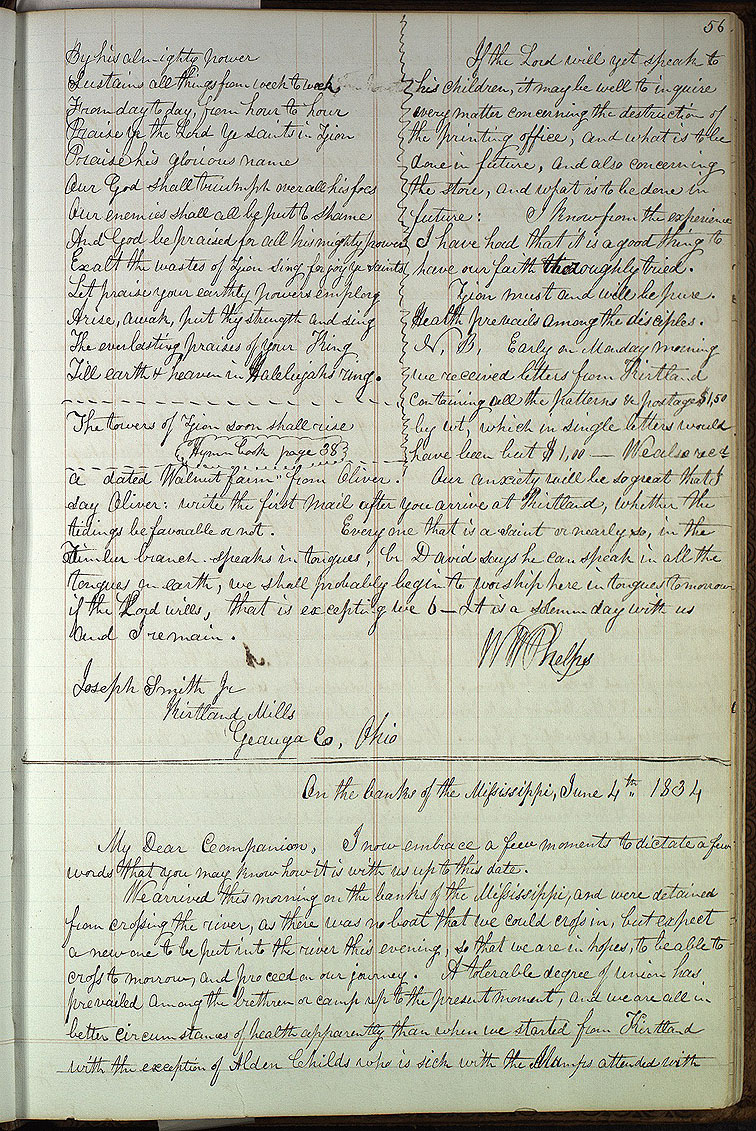 56
By his almighty power
Sustains all things from week to week
From day to day, from hour to hour
Praise ye the Lord ye saints in Zion
Praise his glorious name
Our God shall triumph over all his foes
Our enemies shall all be put to shame
And God be praised for all his mighty power
Exalt the wastes of Zion sing for joy ye saints
Let praise your earthly powers employ
Arise, awak, put thy strength and sing
The everlasting praises of your King
Till earth & heaven in Halelujahs ring.
The towers of Zion soon shall rise
(Hymn book page 38)
If the Lord will yet speak to
his children, it may be well to inquire
every matter concerning the destruction of
the printing office, and what is to be
done in future, and also concerning
the store, and what is to be done in
future: I know from the experience
I have had that it is a good thing to
have our faith thoroughly tried.
Zion must and will be pure.
Health prevails among the disciples.
N. B. Early on Monday morning
we received letters from Kirtland
containing all the patterns & postage $1,50
by wt, which in single letters would
have been but $1,00 — We also recd
a dated "Walnut farm" from Oliver. Our anxiety will be so great that I
say Oliver: write the first mail after you arrive at Kirtland, whether the
tidings be favorable or not. Every one that is a saint or nearly so, in the
Timber branch speaks in tongues, Br David says he can speak in all the
tongues on earth, we shall probably begin to worship here in tongues tomorrow
if the Lord wills, that is excepting we 6 — It is a solemn day with us
and I remain.
W W Phelps
Joseph Smith Jr
Kirtland Mills
Geauga Co, Ohio
On the banks of the Mississippi, June 4th 1834
My Dear Companion, I now embrace a few moments to dictate a few
words that you may know how it is with us up to this date.
We arrived this morning on the banks of the Mississippi, and were detained
from crossing the river, as there was no boat that we could cross in, but expect
a new one to be put into the river this evening, so that we are in hopes, to be able to
cross to morrow, and proceed on our journey. A tolerable degree of union has
prevailed among the brethren or camp up to the present moment, and we are all in
better circumstances of health apparently than when we started from Kirtland
with the exception of Alden Childs who is sick with the Mumps attended with